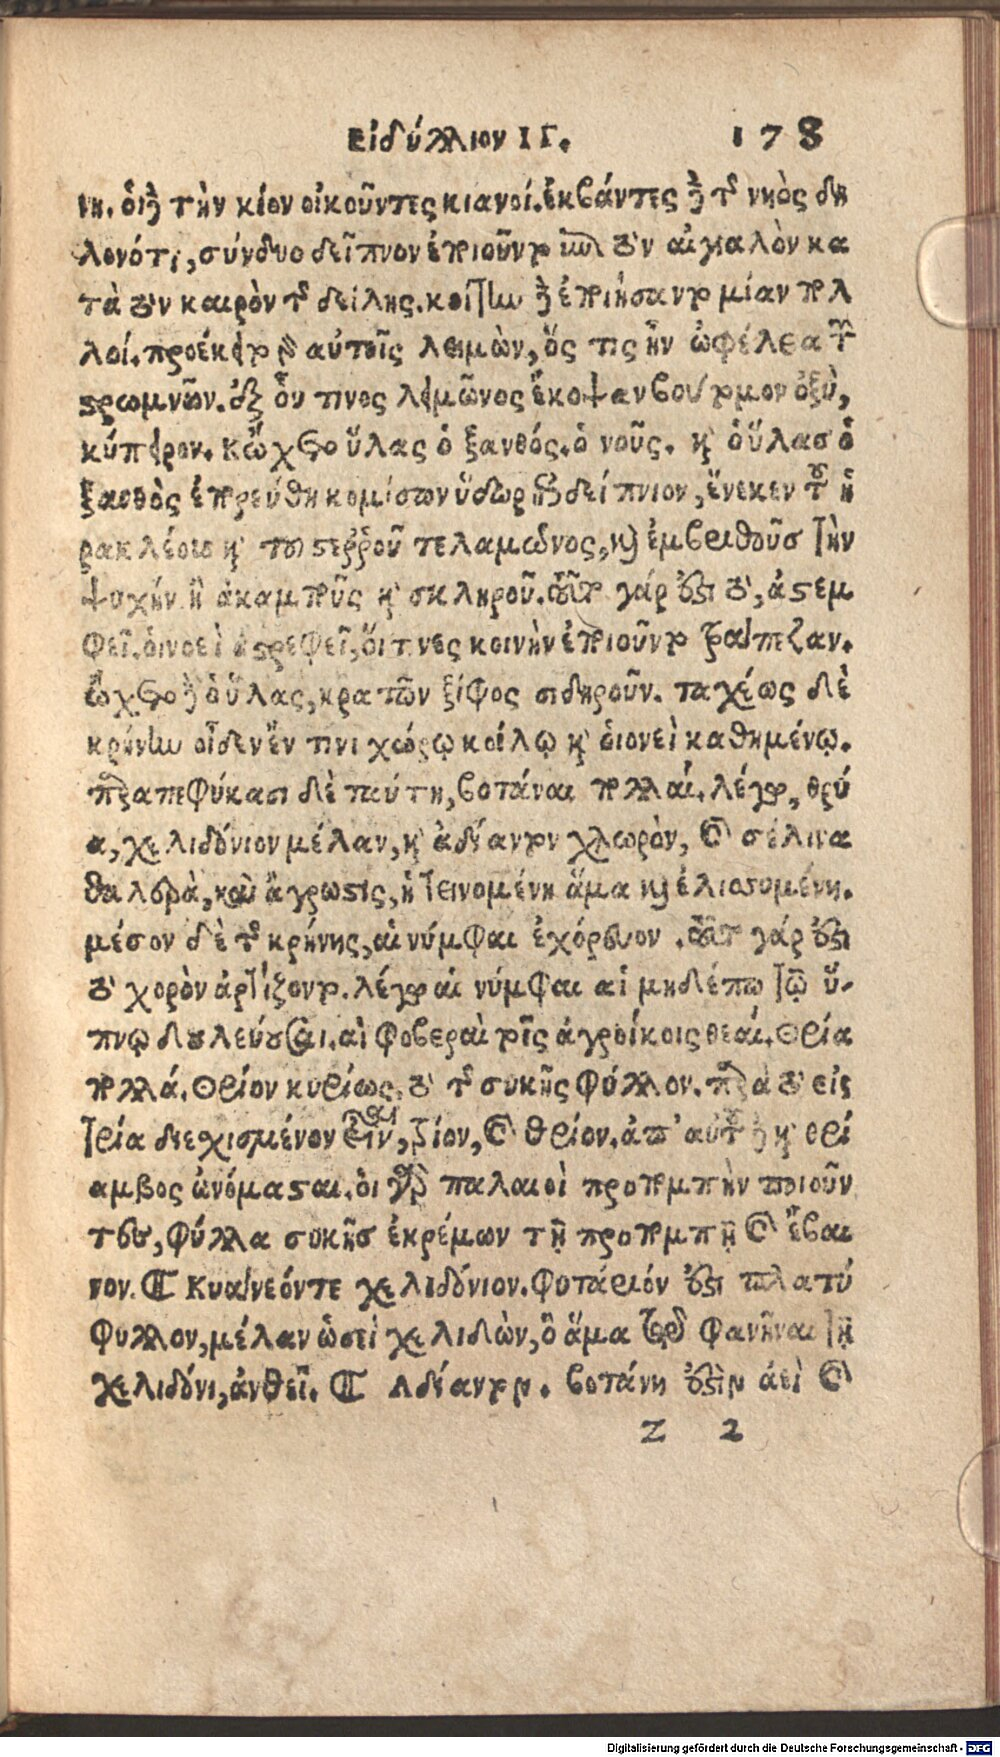 Εἰδύλλιον ΙΓ. 178
νη. οἱ δὲ τὴν κίον οἰκοῦντες κιανοί. ἐκβάντες δὲ τῆς νηὸς δη
λονότι, σύνδυο δεῖπνον ἐποιοῦντο ἐπὶ τὸν αἰγιαλὸν κα
τὰ τὸν καιρὸν τῆς δείλης. κοίτην δὲ ἐποιήσαντο μίαν πολ
λοί. προέκειτο γὰρ αὐτοῖς λειμὼν, ὅς τις ἦν ὠφέλεια τῶν
στρωμνῶν. ἐξ οὗ τινος λειμῶνος ἔκοψαν βούτομον ὀξὺ,
κύπειρον. Κᾤχετο ὕλας ὁ ξανθός. ὁ νοῦς. καὶ ὁ ὕλας ὁ
ξανθὸς ἐπορεύθη κομίσων ὕδωρ ἐπιδείπνιον, ἕνεκεν τοῦ ἡ
ρακλέους καὶ τοῦ στερροῦ τελαμῶνος, καὶ ἐμβριθοῦς τὴν
ψυχὴν ἢ ἀκαμποῦς καὶ σκληροῦ. τοῦτο γάρ ἐστι τὸ, ἀστεμ
φεῖ. οἱονεὶ ἀστρεφεῖ, οἵτινες κοινὴν ἐποιοῦντο τράπεζαν.
ᾤχετο δὲ ὁ ὕλας, κρατῶν ξίφος σιδηροῦν. ταχέως δὲ
κρήνην οἶδεν ἔν τινι χώρῳ κοίλῳ καὶ οἱονεὶ καθημένῳ.
παραπεφύκασι δὲ ταύτῃ, βοτάναι πολλαί. λέγω, θρύ
α, χελιδόνιον μέλαν, καὶ ἀδίαντον χλωρὸν, καὶ σέλινα
θαλερὰ, καὶ ἄγρωστις, ἡ τεινομένη ἅμα καὶ ἑλισσομένη.
μέσον δὲ τῆς κρήνης, αἱ νύμφαι ἐχόρευον. τοῦτο γάρ ἐστι
τὸ χορὸν ἀρτίζοντο. λέγω αἱ νύμφαι αἱ μηδέπω τῷ ὕ-
πνῳ δουλεύουσαι. αἱ φοβεραὶ τοῖς ἀγροίκοις θεαί. Θρία
πολλά. Θρίον κυρίως, τὸ τῆς συκῆς φύλλον. παρὰ τὸ εἰς
τρία διεχισμένον εἶναι, τρίον, καὶ θρίον. ἀπ' αὐτοῦ δὲ καὶ θρί
αμβος ὠνόμασται. οἱ γὰρ παλαιοὶ προπομπὴν ποιοῦν
τες, φύλλα συκῆς ἐκρέμων τῇ προπομπῇ καὶ ἔβαι
νον. ¶ Κυάνεόντε χελιδόνιον. φυτάριόν ἐστι πλατύ
φυλλον, μέλαν ὡσεὶ χελιδὼν, ὃ ἅμα τοῦ φανῆναι τῇ
χελιδόνι, ἀνθεῖ. ¶ Αδίαντον. βοτάνη ἐστὶν ἀεὶ καὶ
Z 2
Digitalisierung gefördert durch die Deutsche Forschungsgemeinschaft - DFG